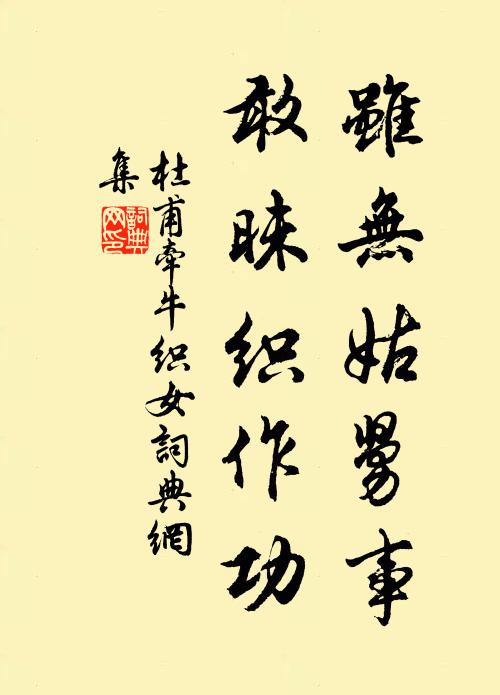 雖無姑舅事
敢昧织作功
杜甫牽牛织女詞典網
集
詞典
网印